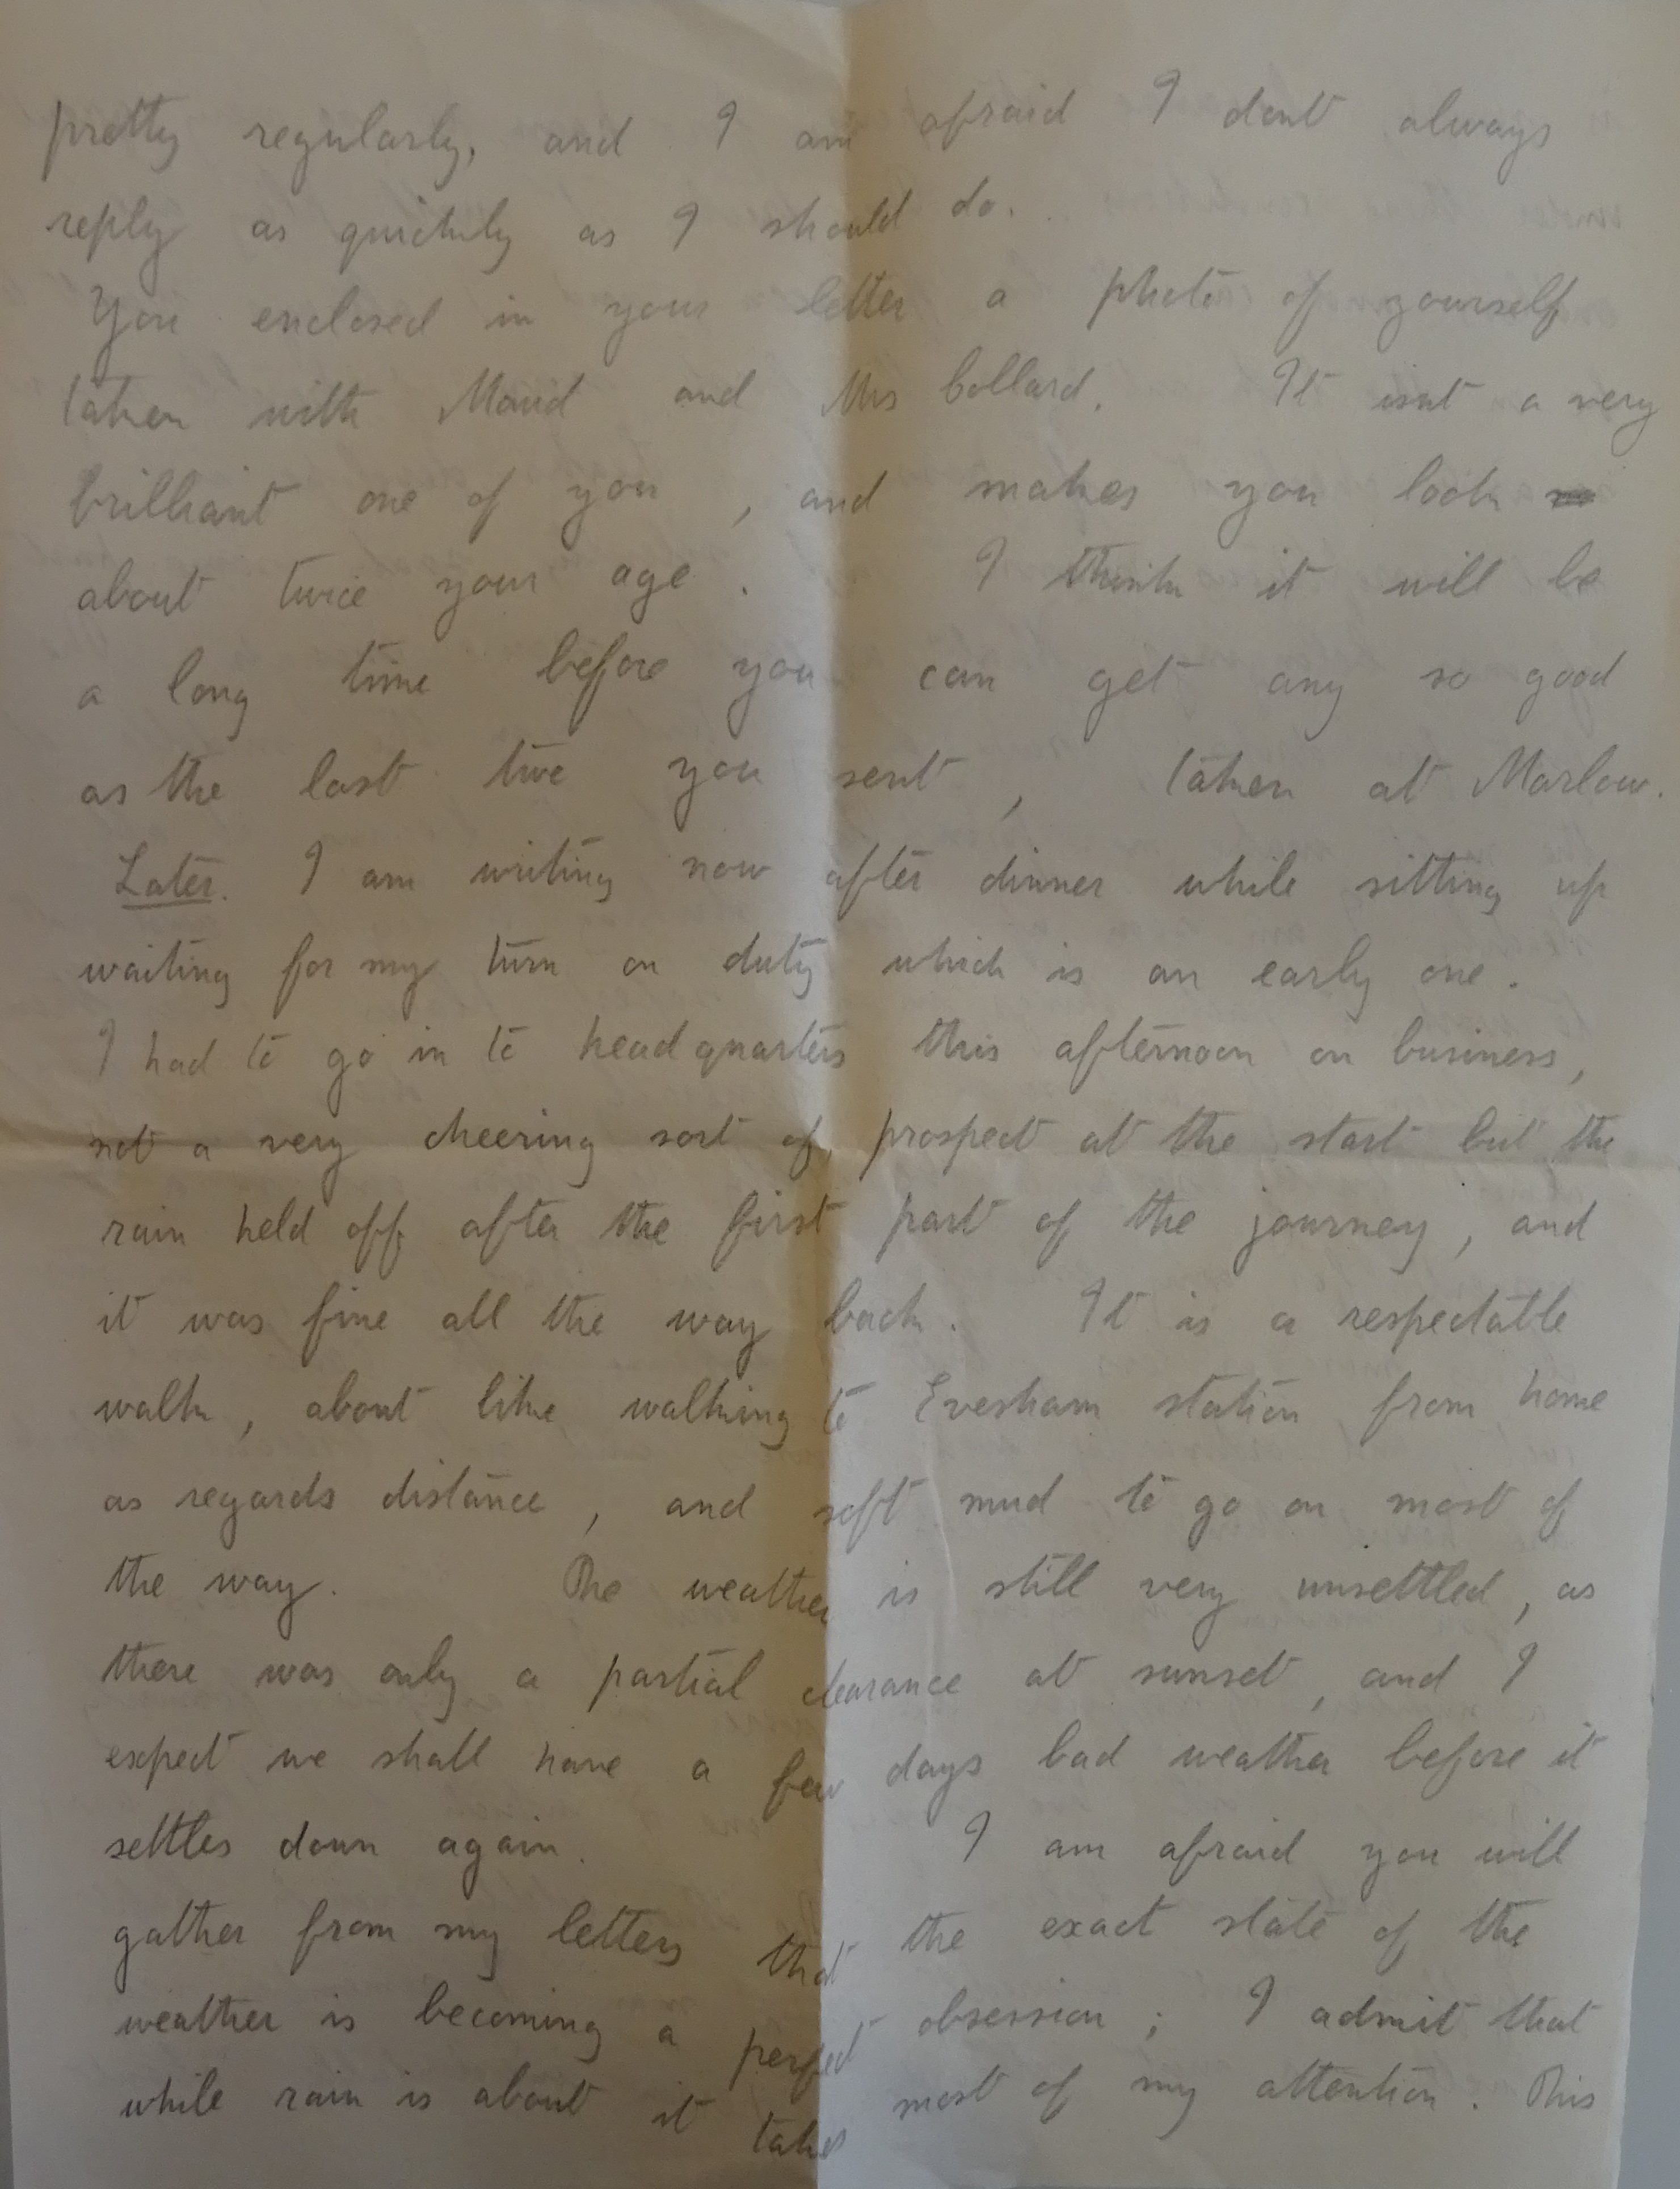 pretty regularly, and I am afraid I dont always
reply as quickly as I should do.
You enclosed in your letter a photo of yourself
taken with Maud and Mrs Collard. It isnt a very
brilliant one of you, and makes you look
about twice your age. I think it will be
a long time before you can get any so good
as the last two you sent, taken at Marlow.
Later. I am writing now after dinner while sitting up
waiting for my turn on duty which is an early one.
I had to go in to headquarters this afternoon on business,
not a very cheering sort of prospect at the start but the
rain held off after the first part of the journey, and
it was fine all the way back. It is a respectable
walk, about like walking to Evesham station from home
as regards distance, and soft mud to go on most of
the way. The weather is still very unsettled, as
there was only a partial clearance at sunset, and I
expect we shall have a few days bad weather before it
settles down again. I am afraid you will
gather from my letters that the exact state of the
weather is becoming a perfect obsession; I admit that
while rain is about it takes most of my attention. This